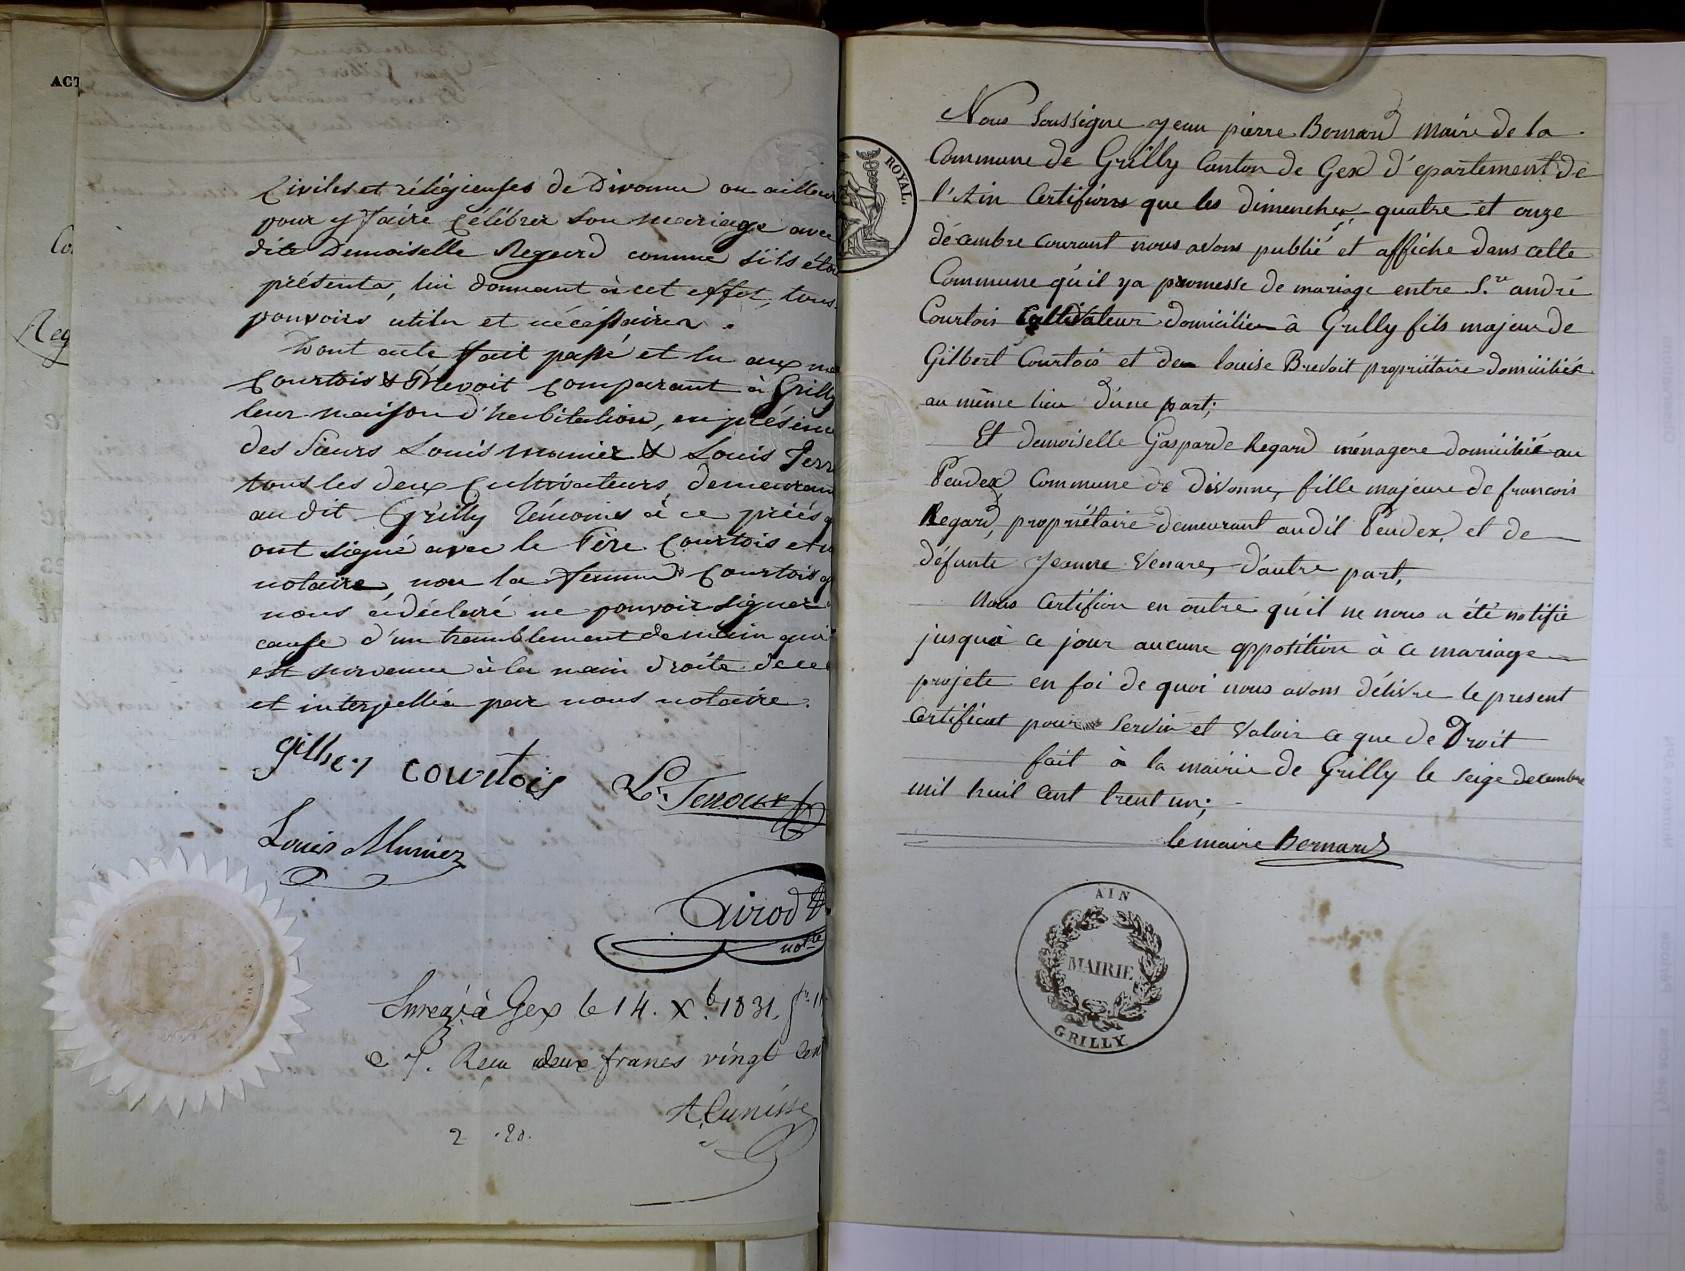 ACT
Co
Reg
Civiles et réligieuses de Divonne ou ailleur
pour y faire Célébrer son mariage avec
dite Demoiselle Regard comme s'ils éto
présents, lui donnant à cet effet, tous
pouvoirs utiles et nécéssaires.
Dont acte fait passé et lu aux
Courtois & Prevoit Comparant à Grilly
leur maison d'habitation, en présence
des Sieurs Louis Munier & Louis Terr
tous les deux Cultivateurs demeurant
au dit Grilly Témoins à ce priés q
ont signé avec le Père Courtois et n
notaire, non la femme Courtois q
nous a déclaré ne pouvoir signer
cause d'un tremblement de main qui
est survenue à la main droite de ce
et interpellée par nous notaire.
gilber courtois L. Terroux
Louis Munier
Girod
not.re
Enreg. à Gex le 14. Xb. 1831. f.
c 7. Reçu deux francs vingt cen
2 .20.
ROYAL.
Nous Soussigne jean pierre Bernard Maire de la
Commune de Grilly Canton de Gex d'épartement de
l'Ain Certifions que les dimenches quatre et onze
décembre courant nous avons publié et affiche dans celle
Commune qu'il ya promesse de mariage entre S.r andré
Courtois Cultivateur domicilie à Grilly fils majeur de
Gilbert Courtois et de louise Brevoit propriétaire domiciliés
au même lieu d'une part;
Et demoiselle Gasparde Regard ménagere domiciliée au
Peudex Commune de divonne, fille majeure de francois
Regard, propriétaire demeurant audit Peudex, et de
défunte Jeanne Venare, d'autre part,
Nous Certifion en outre qu'il ne nous a été notifié
jusqua ce jour aucune oppotition à ce mariage
projete en foi de quoi nous avons délivre le present
Certificat pour Servir et Valoir ce que de Droit
fait à la mairie de Grilly le seige decembre
mil huit cent trent un;
le maire Bernard
AIN
MAIRIE
GRILLY